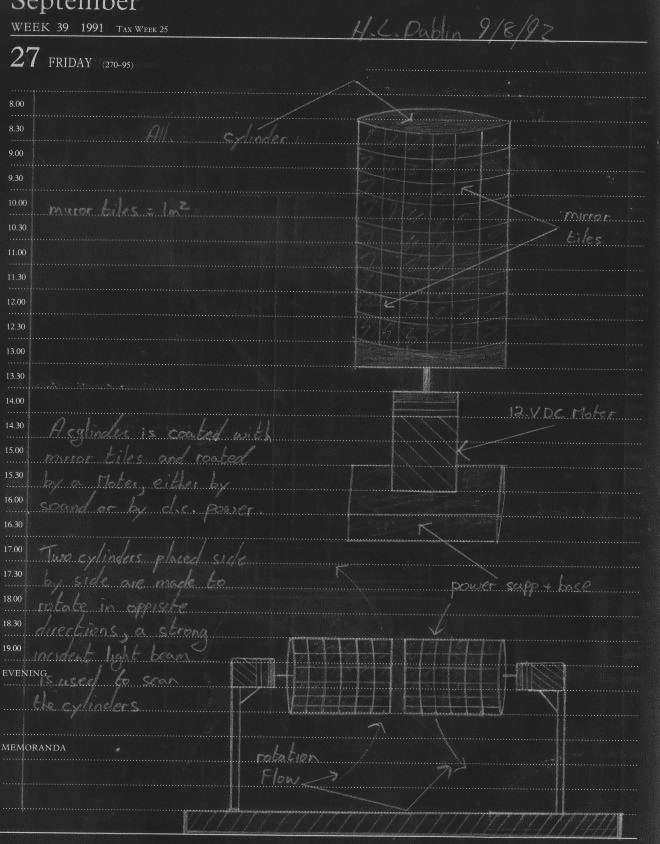 September
WEEK 39 1991 TAX WEEK 25
H.L. Dublin 9/8/93
27 FRIDAY (270-95)
8.00
8.30
All cylinder
9.00
9.30
10.00
mirror tiles = 1m²
mirror
tiles
10.30
11.00
11.30
12.00
12.30
13.00
13.30
14.00
12.V.DC Moter
14.30
A cylinder is coated with
15.00
mirror tiles and roated
15.30
by a Moter, either by
16.00
sound or by d.c. power.
16.30
17.00
Two cylinders placed side
17.30
by side are made to
power supp + base
18.00
rotate in oppisite
18.30
directions, a strong
19.00
incident light beam
EVENING
is used to scan
the cylinders
MEMORANDA
rotation
Flow